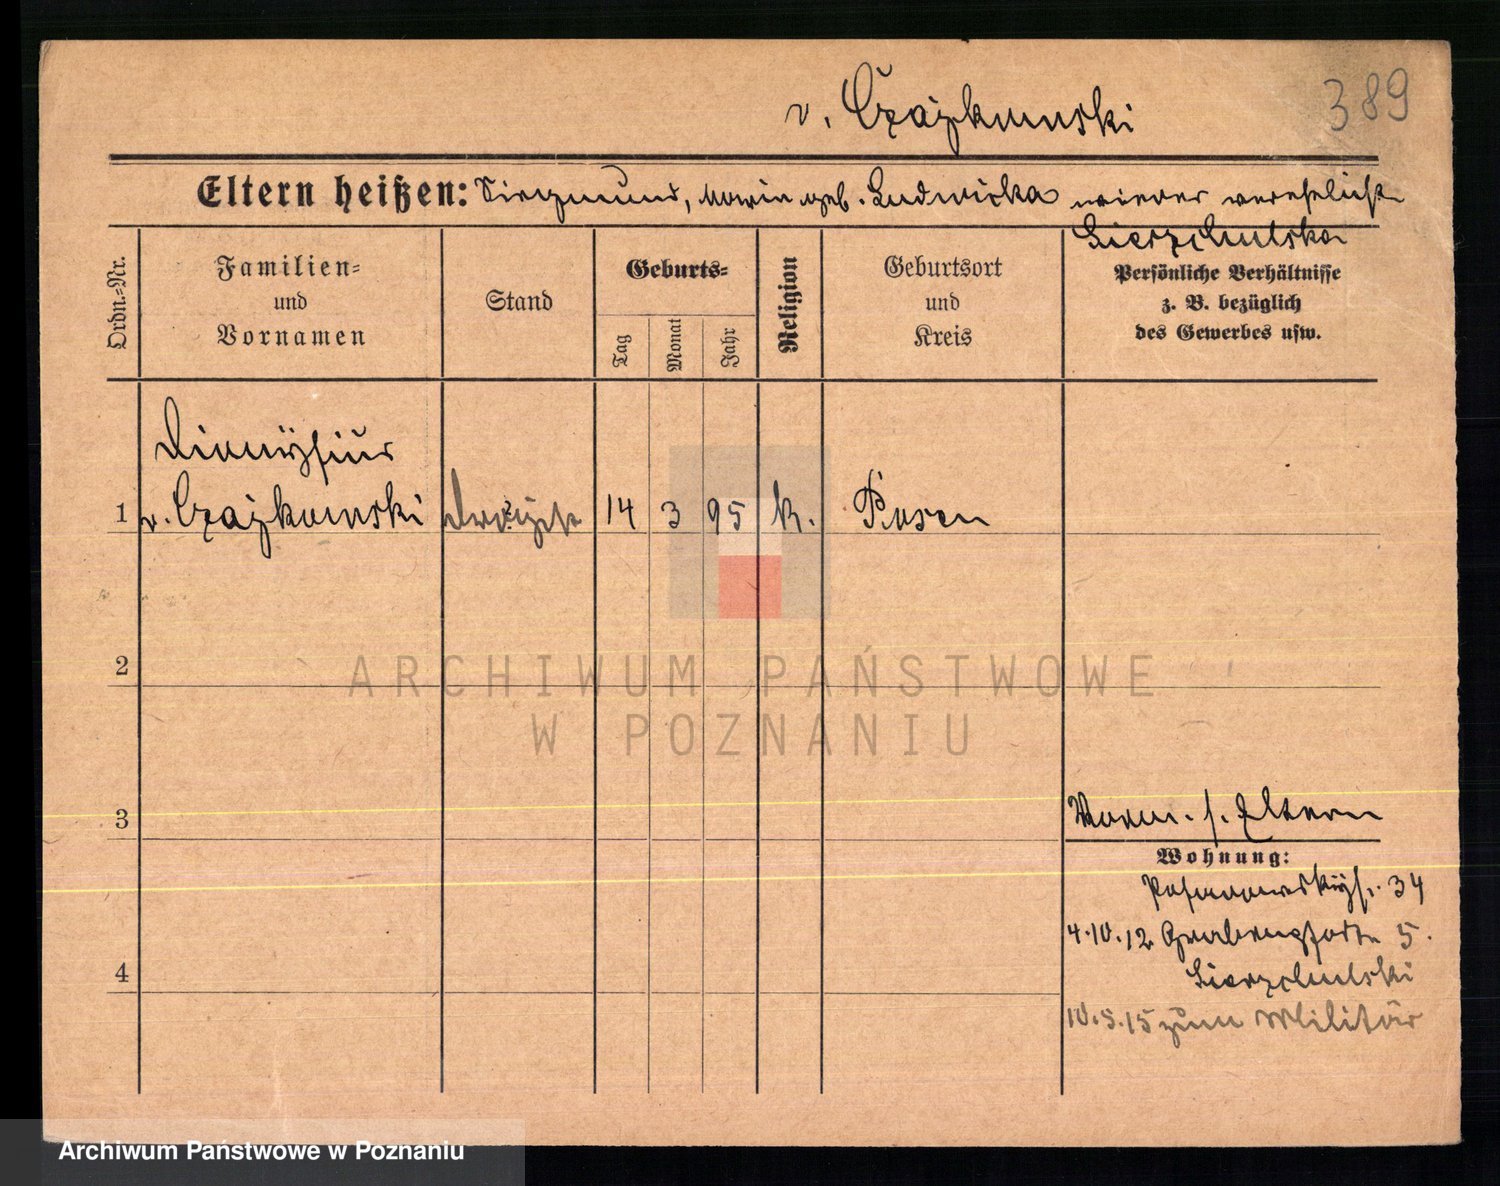 v. Czajkowski
389
Eltern heißen: Siegmund, Maria geb. Ludwicka wieder verehelicht
Sierzchulska
Ordn.-Nr.
Familien-
und
Vornamen
Stand
Geburts-
Tag
Monat
Jahr
Religion
Geburtsort
und
Kreis
Persönliche Verhältnisse
z. B. bezüglich
des Gewerbes usw.
Dionÿsius
1 v. Czajkowski 14 3 95 k. Posen
2
ARCHIWUM PAŃSTWOWE
W POZNANIU
3
Vorm. s. Eltern
Wohnung:
34
4.10.12 5.
4
Sierzchulski
10.5.15 zum Militär
Archiwum Państwowe w Poznaniu